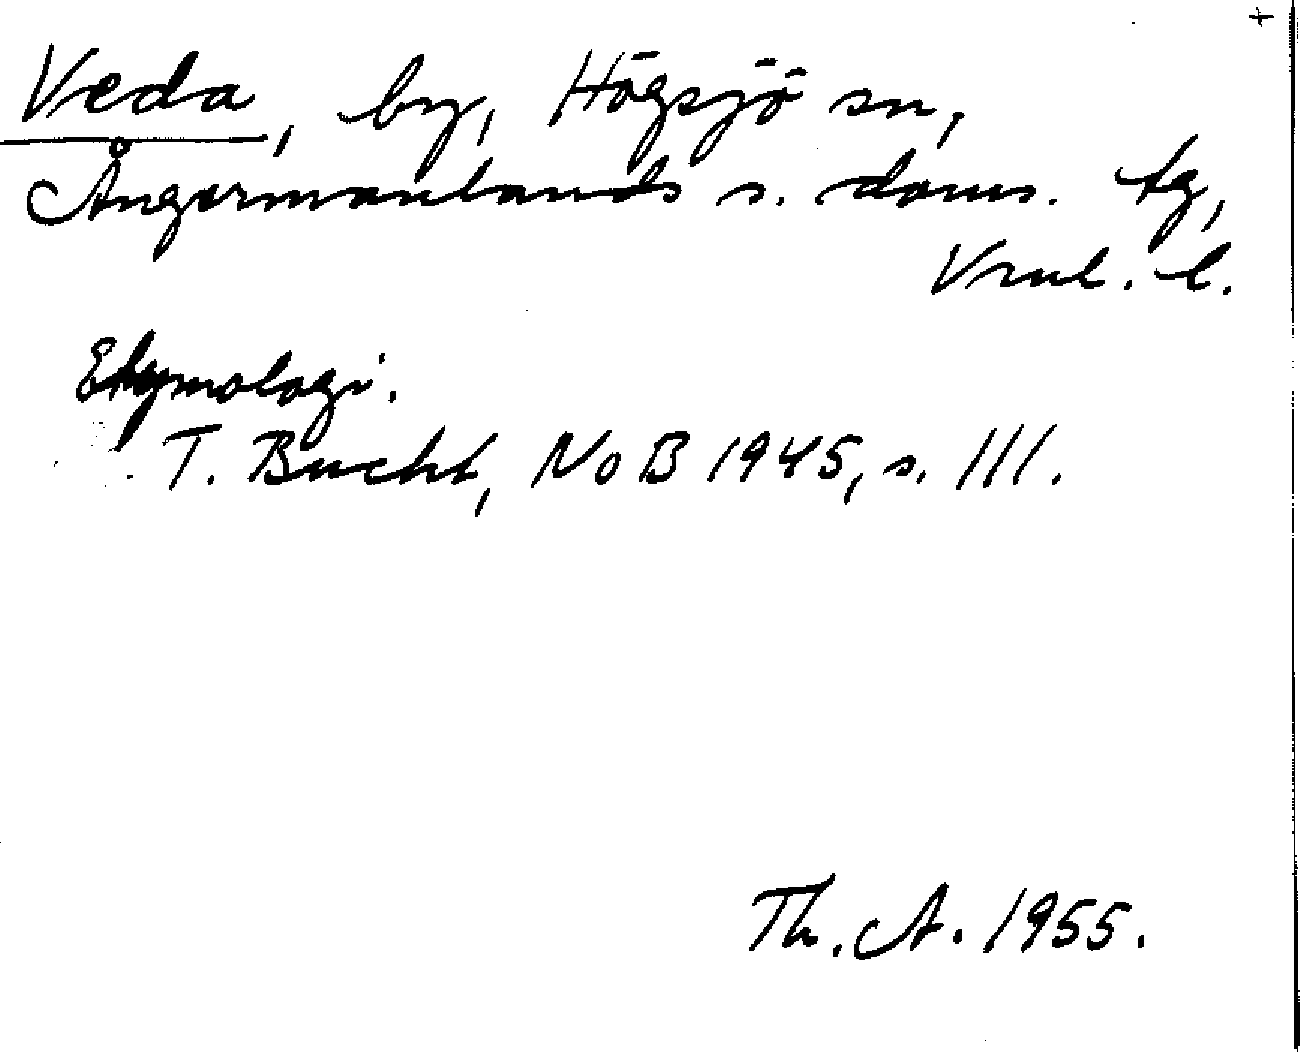 +
Veda, by, Högsjö sn,
Ångermanlands s. doms. tg,
Vrnl. l.
Etymologi.
T. Bucht, NoB 1945, s. 111.
Th. A. 1955.